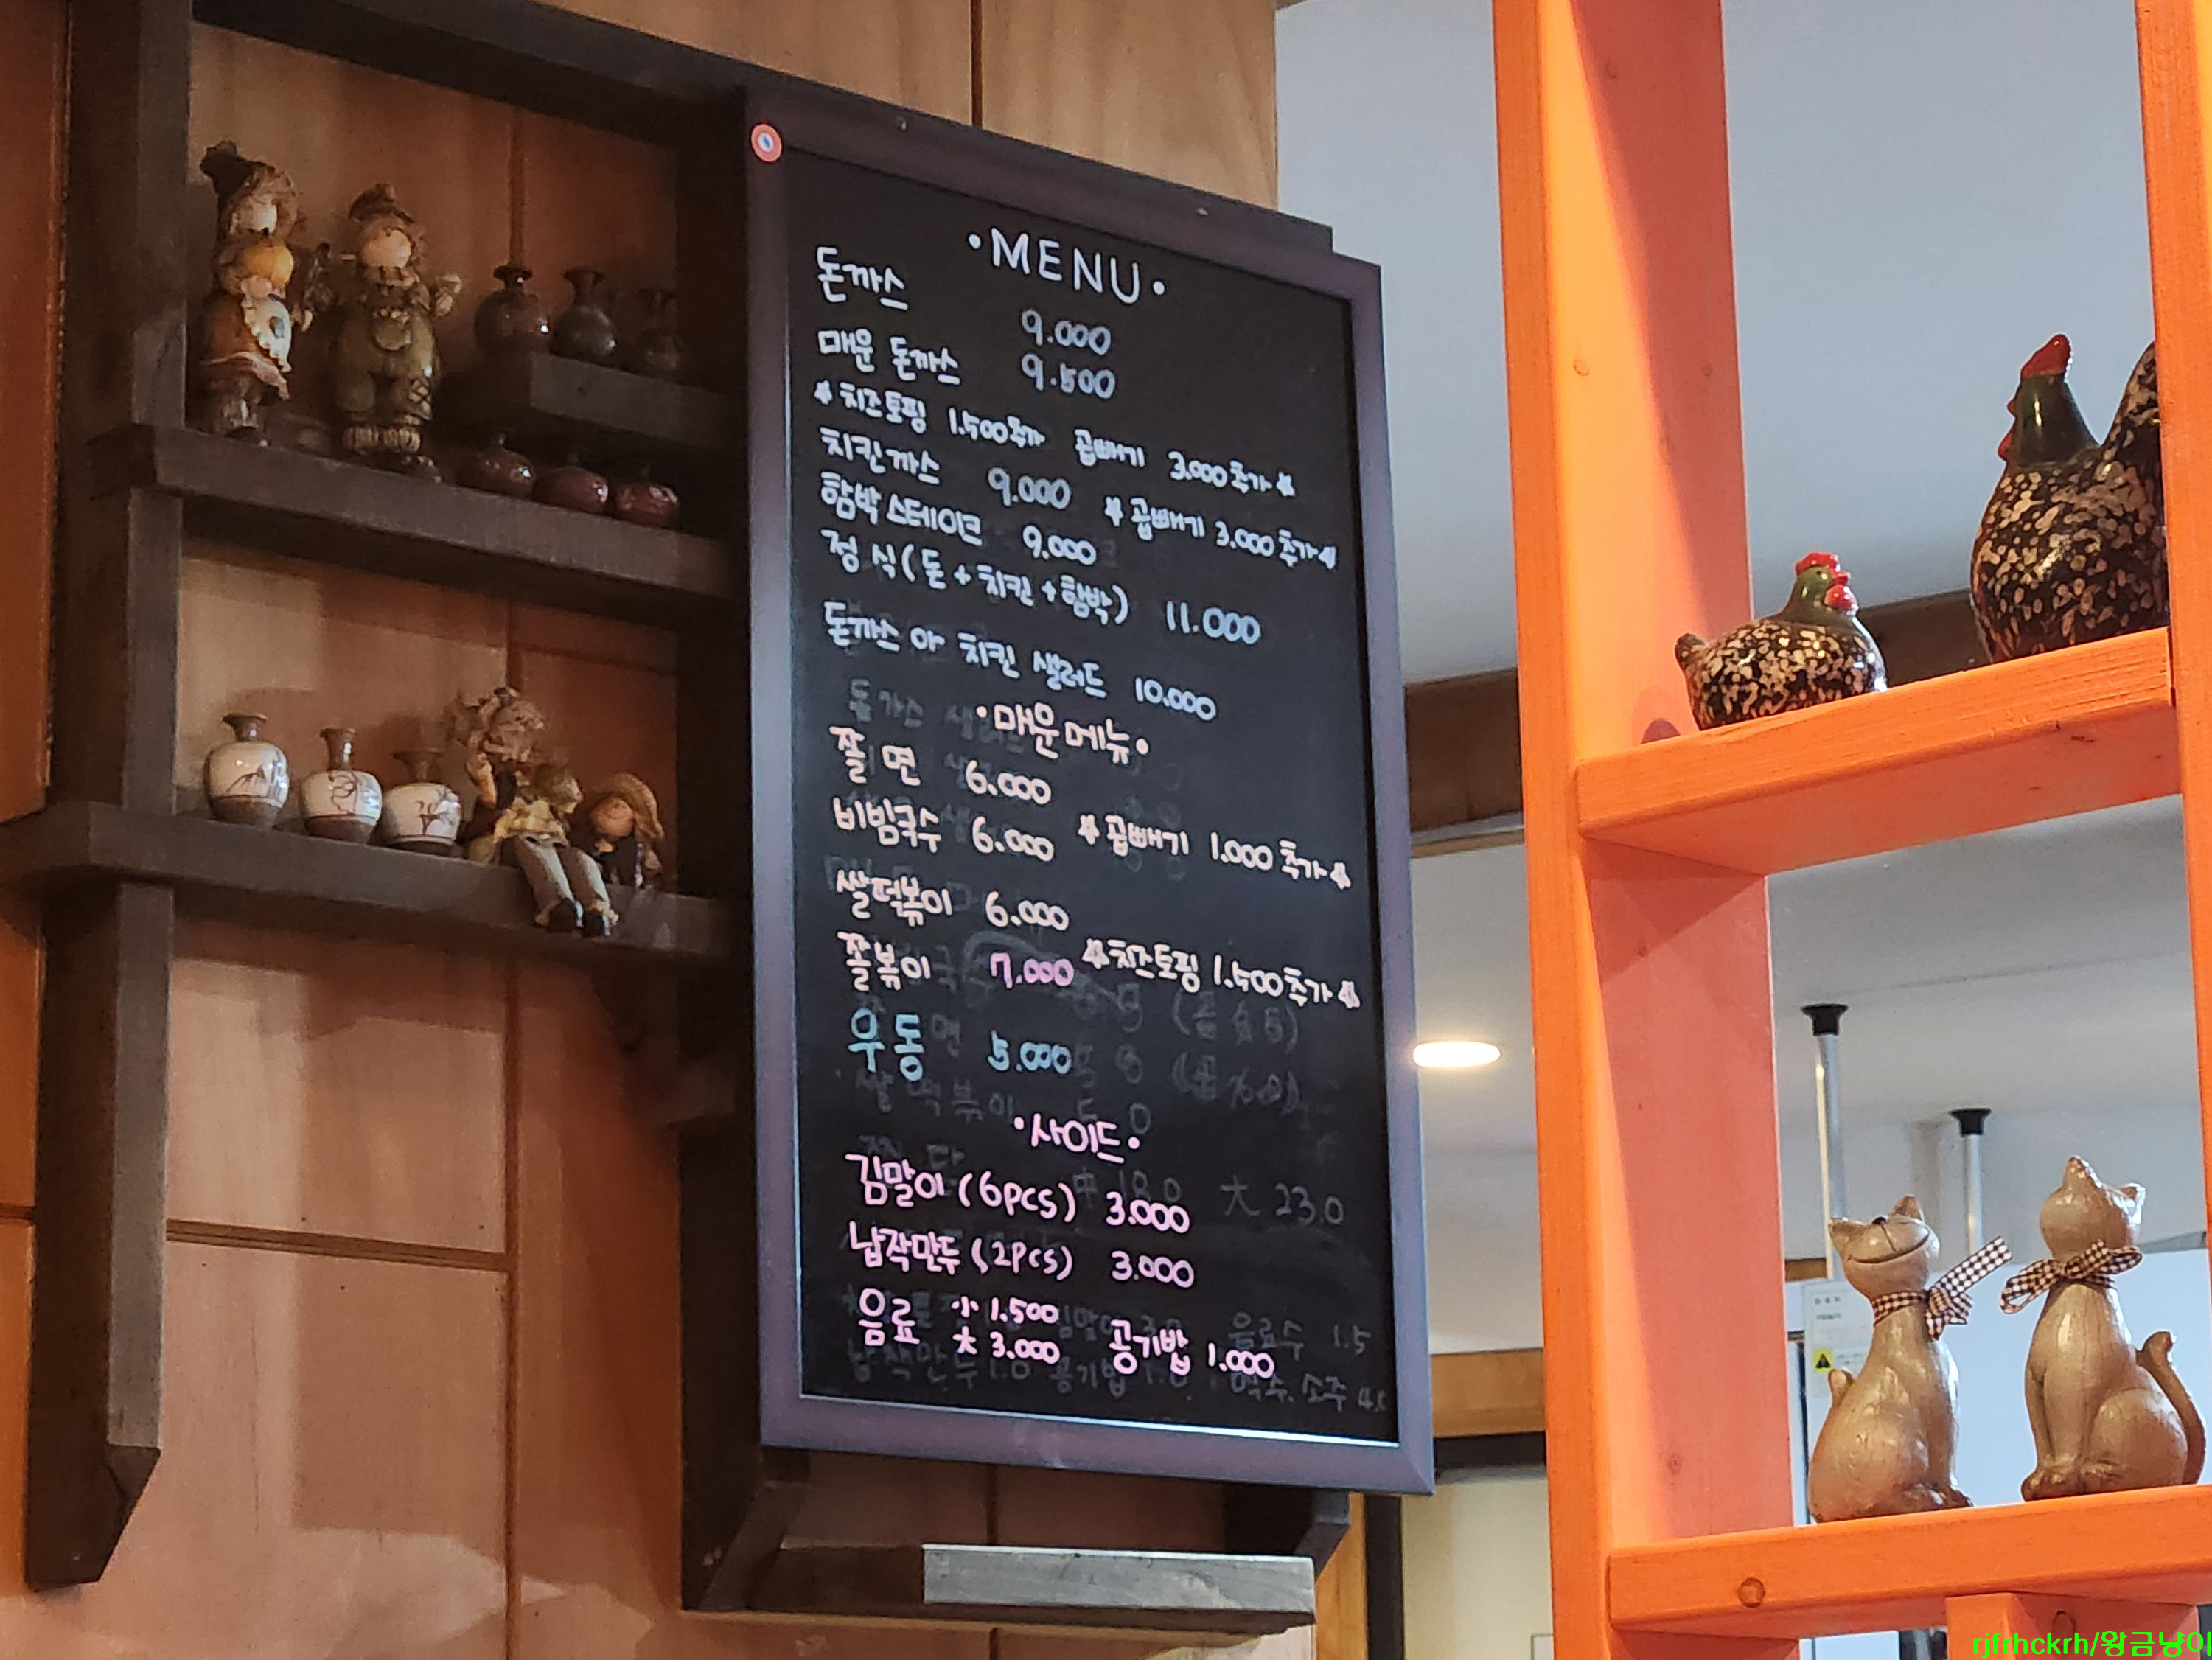 •MENU•
돈까스 9.000
매운 돈까스 9.500
*치즈토핑 1.500추가 곱빼기 3.000추가*
치킨까스 9.000 *곱빼기 3.000추가*
함박스테이크 9.000
정식(돈+치킨+함박) 11.000
돈까스 야 치킨 샐러드 10.000
•매운메뉴•
쫄면 6.000
비빔국수 6.000 *곱빼기 1.000추가*
쌀떡볶이 6.000
쫄볶이 7.000 *치즈토핑 1.500추가*
우동 5.000
•사이드•
김말이(6pcs) 3.000
大 23.0
납작만두(2pcs) 3.000
음료 小 1.500
大 3.000 공기밥 1.000
음료수 1.5
소주
rjfrhckrh/황금냥이